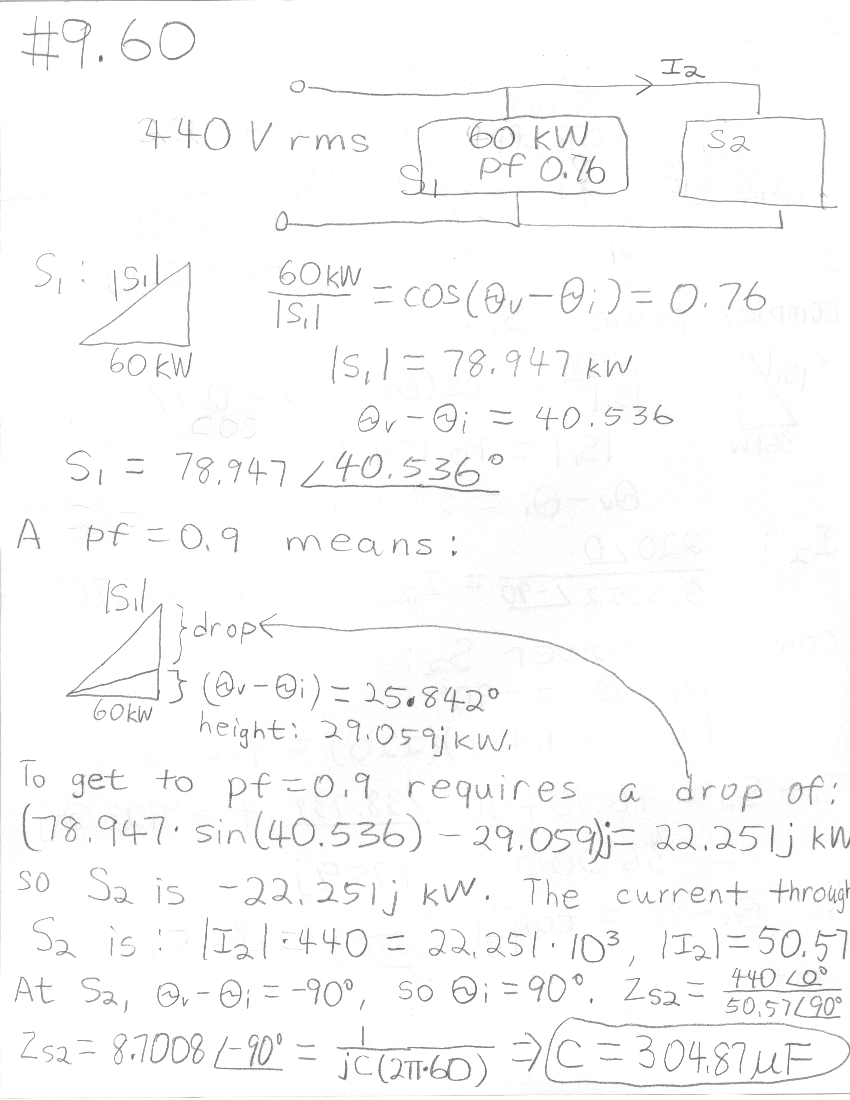 #9.60
I2
440 V rms
60 kW
pf 0.76
S1
S2
S1: |S1|
60 kW
60 kW / |S1| = cos(θv-θi) = 0.76
|S1| = 78.947 kW
θv-θi = 40.536
S1 = 78.947 ∠40.536°
A pf = 0.9 means:
|S1|
} drop
60 kW } (θv-θi) = 25.842°
height: 29.059j kW.
To get to pf = 0.9 requires a drop of:
(78.947 · sin(40.536) - 29.059)j = 22.251j kW
so S2 is -22.251j kW. The current through
S2 is: |I2| · 440 = 22.251 · 10³, |I2| = 50.57
At S2, θv-θi = -90°, so θi = 90°. Zs2 = 440∠0° / 50.57∠90°
Zs2 = 8.7008 ∠-90° = 1 / jC(2π·60) ⇒ C = 304.87 μF